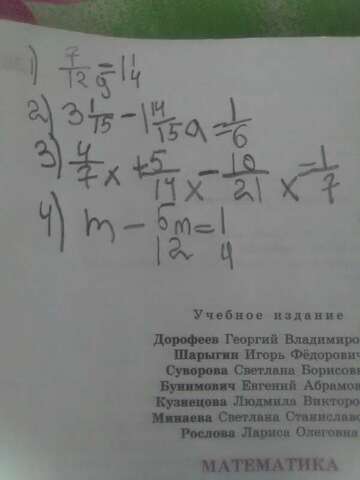 1) 7/12 g = 1 1/4
2) 3 1/15 - 1 14/15 a = 1/6
3) 4/7 x + 5/14 x - 10/21 x = 1/7
4) m - 5m/12 = 1/4
Учебное издание
Дорофеев Георгий Владимиро
Шарыгин Игорь Фёдорович
Суворова Светлана Борисовн
Бунимович Евгений Абрамов
Кузнецова Людмила Викторо
Минаева Светлана Станиславо
Рослова Лариса Олеговна
МАТЕМАТИКА